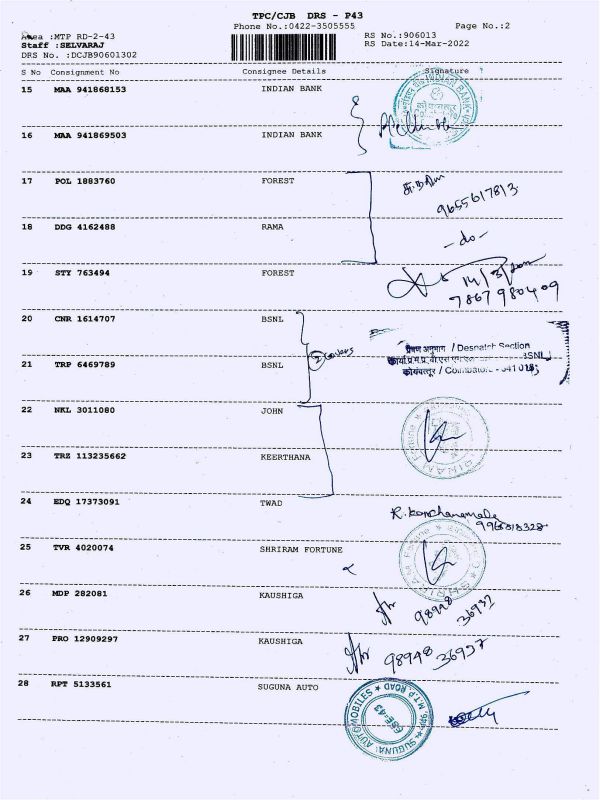 TPC/CJB DRS - P43
Phone No.:0422-3505555 Page No.:2
Area :MTP RD-2-43 RS No.:906013
Staff :SELVARAJ RS Date:14-Mar-2022
DRS No. :DCJB90601302
S No Consignment No Consignee Details Signature
15 MAA 941868153 INDIAN BANK
INDIAN BANK
16 MAA 941869503 INDIAN BANK
17 POL 1883760 FOREST
9655617813
18 DDG 4162488 RAMA
-do-
19 STY 763494 FOREST
7867980409
20 CNR 1614707 BSNL
2 covers
प्रेषण अनुभाग / Despatch Section
BSNL
21 TRP 6469789 BSNL
कोयंबत्तूर / Coimbatore - 641 018
22 NKL 3011080 JOHN
23 TRZ 113235662 KEERTHANA
24 EDQ 17373091 TWAD
25 TVR 4020074 SHRIRAM FORTUNE
26 MDP 282081 KAUSHIGA
98948 36937
27 PRO 12909297 KAUSHIGA
98948 36937
28 RPT 5133561 SUGUNA AUTO
SUGUNA AUTOMOBILES ★ M.T.P. ROAD
CBE-43